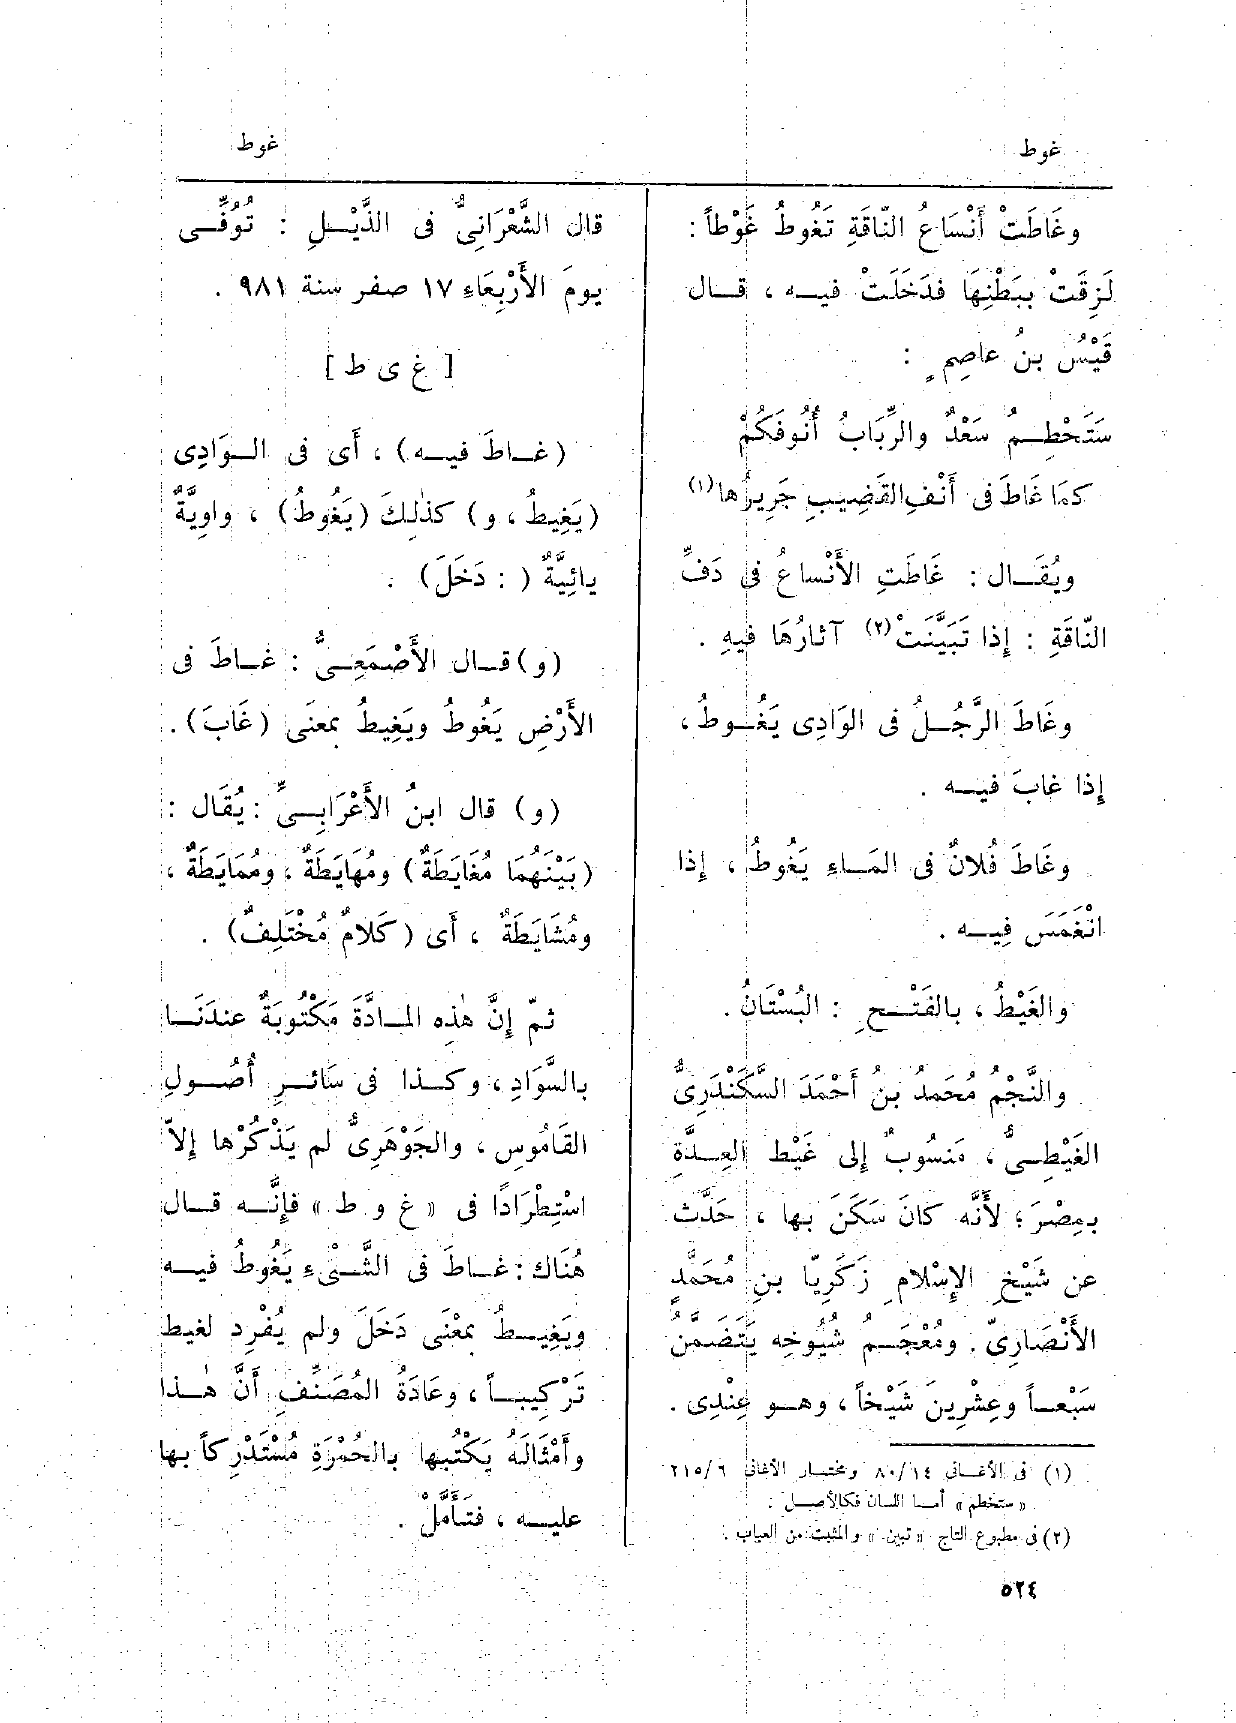 غوط
غوط
وغَاطَتْ أَنْسَاعُ النّاقَةِ تَغُوطُ غَوْطاً :
لَزِقَتْ بِبَطْنِهَا فدَخَلَتْ فيه ، قال
قَيْسُ بنُ عاصِمٍ :
سَتَحْطِمُ سَعْدٌ والرِّبَابُ أُنُوفَكُمْ
كمَا غَاطَ فى أَنْفِ القَضِيبِ جَرِيرُها(١)
ويُقَال : غَاطَتِ الأَنْساعُ فى دَفِّ
النّاقَةِ : إِذا تَبَيَّنَتْ(٢) آثارُهَا فيهِ .
وغَاطَ الرَّجُلُ فى الوَادِى يَغُوطُ ،
إِذا غابَ فيه .
وغَاطَ فُلانٌ فى المَاءِ يَغُوطُ ، إِذا
انْغَمَسَ فِيه .
والغَيْطُ ، بالفَتْحِ : البُسْتَانُ .
والنَّجْمُ مُحَمدُ بنُ أَحْمَدَ السَّكَنْدَرِىُّ
الغَيْطِىُّ ، مَنسُوبٌ إلى غَيْط العِدَّةِ
بمِصْرَ ؛ لأَنَّه كانَ سَكَنَ بها ، حَدَّث
عن شَيْخِ الإِسْلامِ زَكَرِيّا بنِ مُحَمَّدٍ
الأَنْصَارِىّ . ومُعْجَمُ شُيُوخِه يَتَضَمَّنُ
سَبْعاً وعِشْرِينَ شَيْخاً ، وهو عِنْدِى .
(١) فى الأغانى ٨٠/١٤ ومختار الأغانى ٢١٥/٦
« ستخطم » أما اللسان فكالأصل .
(٢) فى مطبوع التاج « تبين » والمثبت من العباب .
٥٢٤
قال الشَّعْرَانِىُّ فى الذَّيْلِ : تُوُفِّى
يومَ الأَرْبِعَاءِ ١٧ صفر سنة ٩٨١ .
[ غ ى ط ]
(غاطَ فيه) ، أَى فى الوَادِى
(يَغِيطُ ، و) كذٰلِكَ (يَغُوطُ) ، واوِيَّةٌ
يائِيَّةٌ ( : دَخَلَ) .
(و) قال الأَصْمَعِىُّ : غاطَ فى
الأَرْضِ يَغُوطُ ويَغِيطُ بمعنَى (غَابَ) .
(و) قال ابنُ الأَعْرَابِىِّ : يُقَال :
(بَيْنَهُمَا مُغَايَطَةٌ) ومُهَايَطَةٌ ، ومُمَايَطَةٌ ،
ومُشَايَطَةٌ ، أَى (كَلامٌ مُخْتَلِفٌ) .
ثمّ إِنَّ هٰذِه المادَّةَ مَكْتُوبَةٌ عندَنَا
بالسَّوَادِ ، وكذا فى سَائرِ أُصُولِ
القَامُوسِ ، والجَوْهَرِىُّ لم يَذْكُرْها إِلاّ
اسْتِطْرَادًا فى « غ و ط » فإِنَّه قال
هُنَاك : غاطَ فى الشَّىْءِ يَغُوطُ فيه
ويَغِيطُ بمعْنَى دَخَلَ ولم يُفْرِد لغيط
تَرْكِيباً ، وعَادَةُ المُصَنِّفِ أَنَّ هٰذا
وأَمْثَالَهُ يَكْتُبها بالحُمْرَةِ مُسْتَدْرِكاً بها
عليه ، فتَأَمَّلْ .